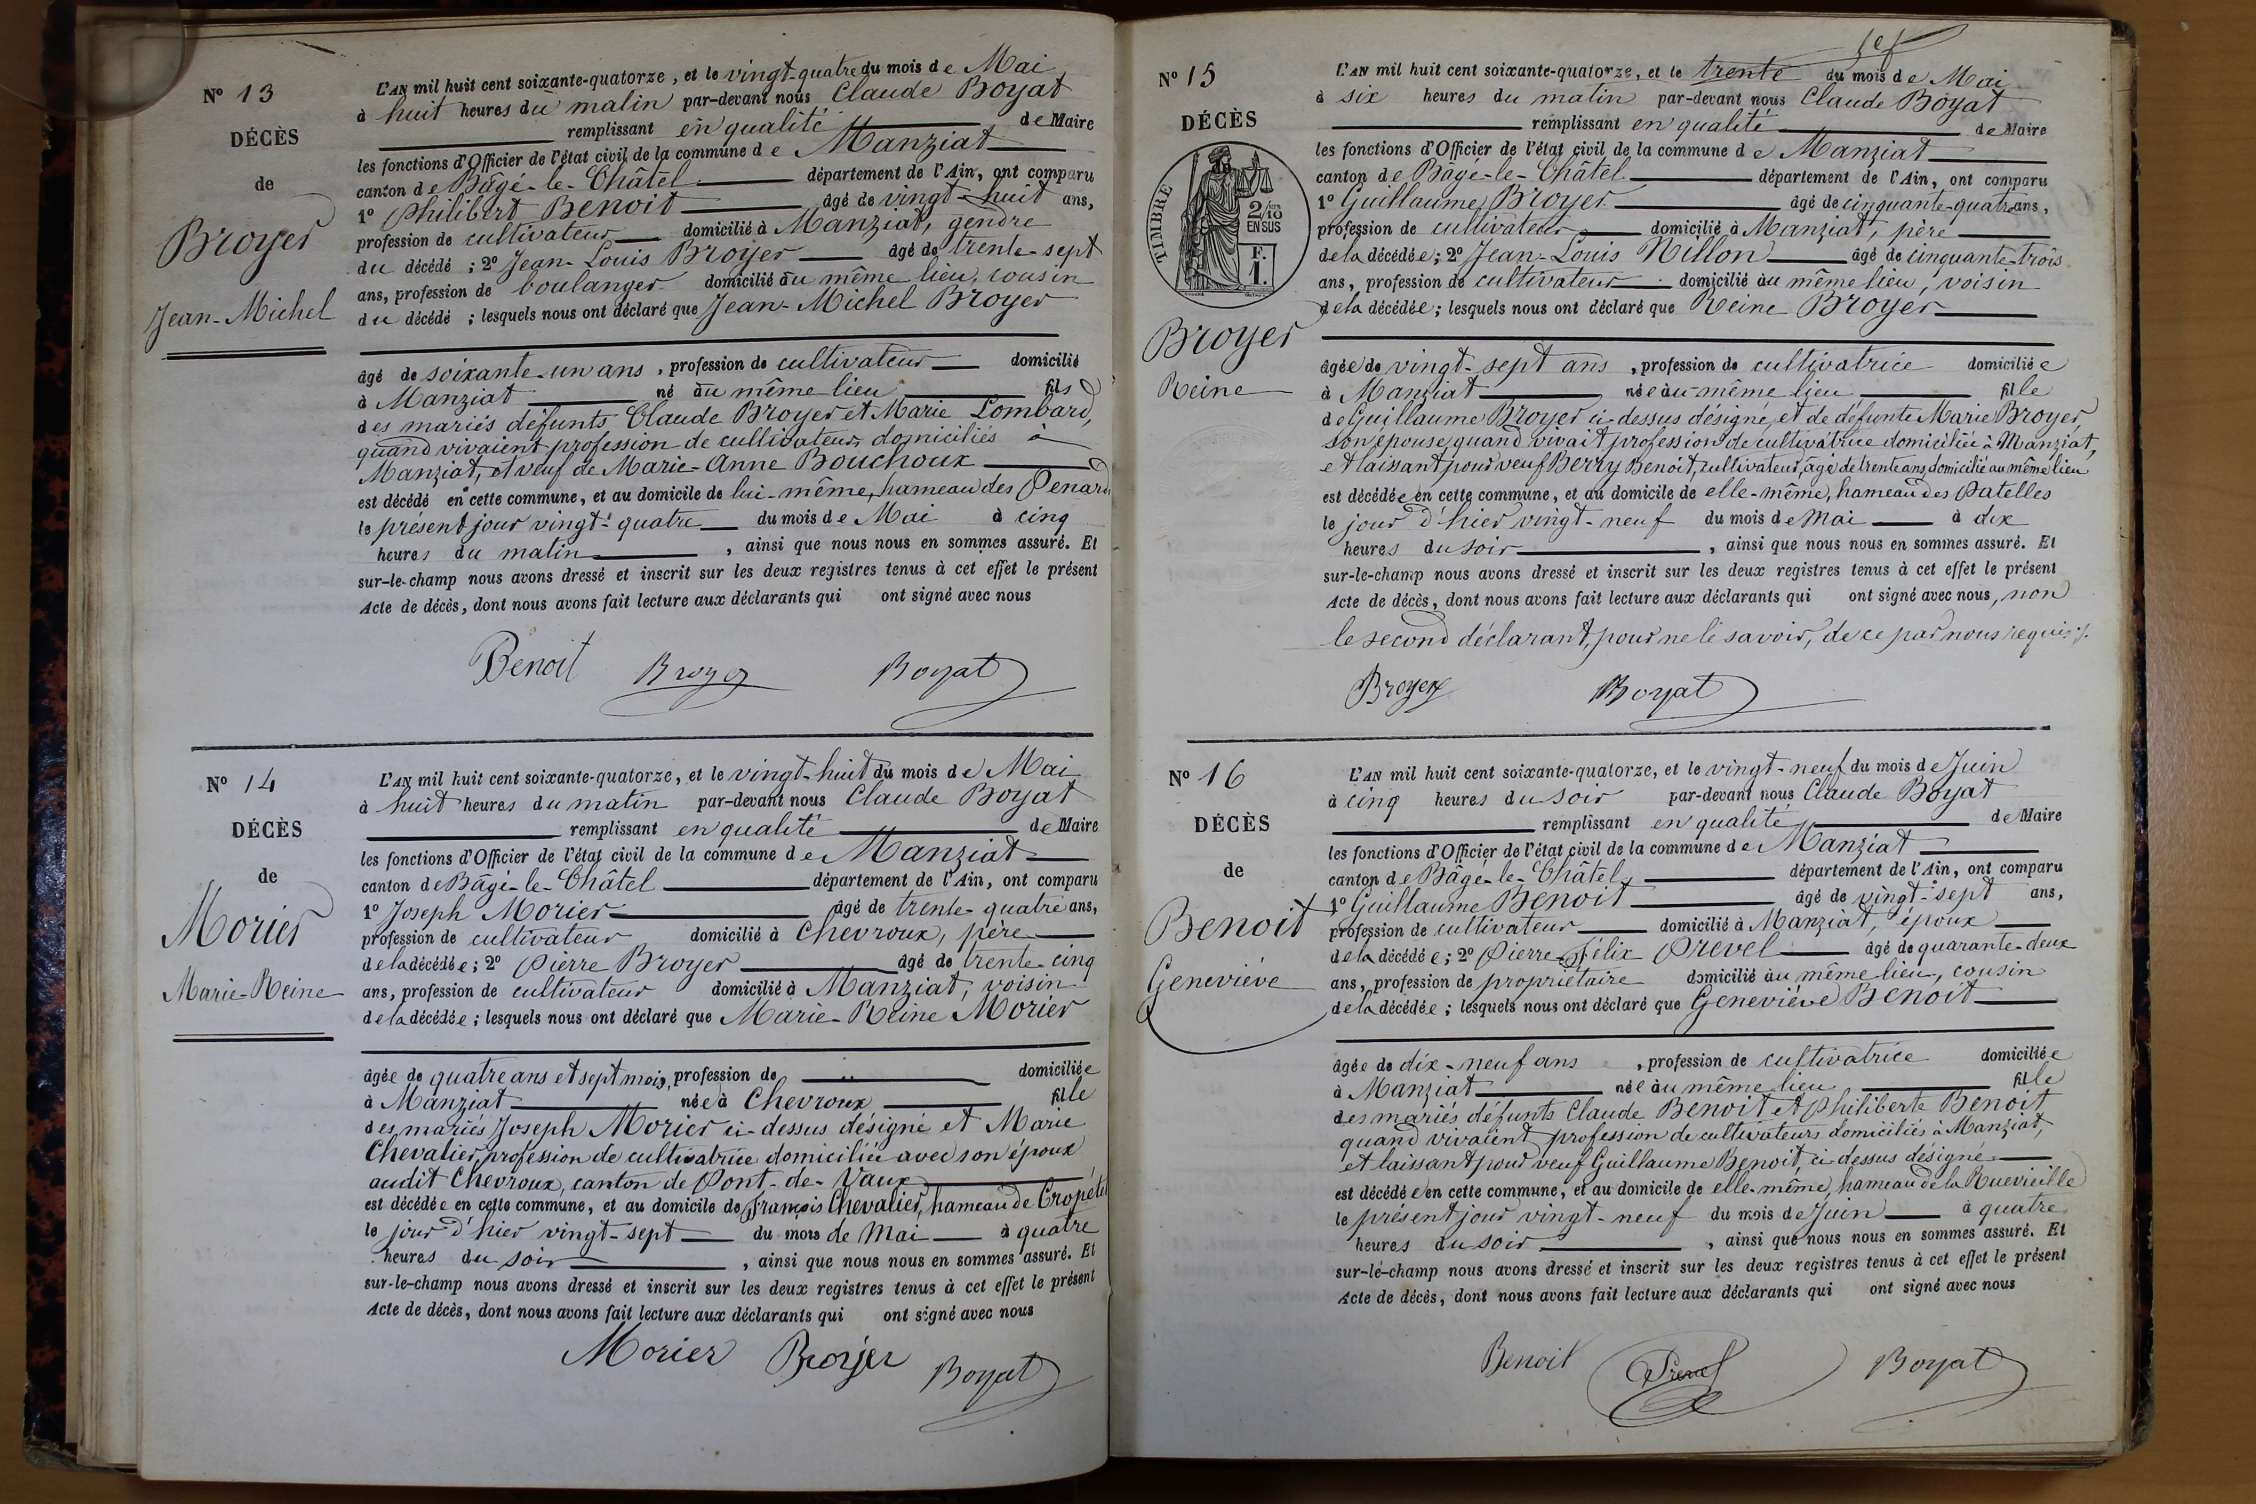 N° 13
DÉCÈS
de
Broyer
Jean-Michel
L'AN mil huit cent soixante-quatorze, et le vingt-quatre du mois de Mai
à huit heures du matin par-devant nous Claude Boyat
remplissant en qualité de Maire
les fonctions d'Officier de l'état civil de la commune de Manziat
canton de Bâgé-le-Châtel département de l'Ain, ont comparu
1° Philibert Benoit âgé de vingt-huit ans,
profession de cultivateur domicilié à Manziat, gendre
du décédé ; 2° Jean-Louis Broyer âgé de trente-sept
ans, profession de boulanger domicilié au même lieu, cousin
du décédé ; lesquels nous ont déclaré que Jean-Michel Broyer
âgé de soixante-un ans, profession de cultivateur domicilié
à Manziat né au même lieu fils
des mariés défunts Claude Broyer et Marie Lombard,
quand vivaient profession de cultivateurs domiciliés à
Manziat, et veuf de Marie-Anne Bouchoux
est décédé en cette commune, et au domicile de lui-même, hameau des Penards
le présent jour vingt-quatre du mois de Mai à cinq
heures du matin, ainsi que nous nous en sommes assuré. Et
sur-le-champ nous avons dressé et inscrit sur les deux registres tenus à cet effet le présent
Acte de décès, dont nous avons fait lecture aux déclarants qui ont signé avec nous
Benoit Broyer Boyat
N° 14
DÉCÈS
de
Morier
Marie-Reine
L'AN mil huit cent soixante-quatorze, et le vingt-huit du mois de Mai
à huit heures du matin par-devant nous Claude Boyat
remplissant en qualité de Maire
les fonctions d'Officier de l'état civil de la commune de Manziat
canton de Bâgé-le-Châtel département de l'Ain, ont comparu
1° Joseph Morier âgé de trente-quatre ans,
profession de cultivateur domicilié à Chevroux, père
de la décédée ; 2° Pierre Broyer âgé de trente-cinq
ans, profession de cultivateur domicilié à Manziat, voisin
de la décédée ; lesquels nous ont déclaré que Marie-Reine Morier
âgée de quatre ans et sept mois, profession de domiciliée
à Manziat née à Chevroux fille
des mariés Joseph Morier ci-dessus désigné et Marie
Chevalier, profession de cultivatrice domiciliée avec son époux
audit Chevroux, canton de Pont-de-Vaux
est décédée en cette commune, et au domicile de François Chevalier, hameau de Cropétel
le jour d'hier vingt-sept du mois de Mai à quatre
heures du soir, ainsi que nous nous en sommes assuré. Et
sur-le-champ nous avons dressé et inscrit sur les deux registres tenus à cet effet le présent
Acte de décès, dont nous avons fait lecture aux déclarants qui ont signé avec nous
Morier Broyer Boyat
N° 15
DÉCÈS
TIMBRE
2/10
EN SUS
F.
1.
Broyer
Reine
L'AN mil huit cent soixante-quatorze, et le trente du mois de Mai
à six heures du matin par-devant nous Claude Boyat
remplissant en qualité de Maire
les fonctions d'Officier de l'état civil de la commune de Manziat
canton de Bâgé-le-Châtel département de l'Ain, ont comparu
1° Guillaume Broyer âgé de cinquante-quatre ans,
profession de cultivateur domicilié à Manziat, père
de la décédée ; 2° Jean-Louis Nillon âgé de cinquante-trois
ans, profession de cultivateur domicilié au même lieu, voisin
de la décédée ; lesquels nous ont déclaré que Reine Broyer
âgée de vingt-sept ans, profession de cultivatrice domiciliée
à Manziat née au même lieu fille
de Guillaume Broyer ci-dessus désigné, et de défunte Marie Broyer,
son épouse, quand vivait profession de cultivatrice domiciliée à Manziat,
et laissant pour veuf Berry Benoit, cultivateur, âgé de trente ans, domicilié au même lieu
est décédée en cette commune, et au domicile de elle-même, hameau des Patelles
le jour d'hier vingt-neuf du mois de Mai à dix
heures du soir, ainsi que nous nous en sommes assuré. Et
sur-le-champ nous avons dressé et inscrit sur les deux registres tenus à cet effet le présent
Acte de décès, dont nous avons fait lecture aux déclarants qui ont signé avec nous, non
le second déclarant, pour ne le savoir, de ce par nous requis
Broyer Boyat
N° 16
DÉCÈS
de
Benoit
Geneviève
L'AN mil huit cent soixante-quatorze, et le vingt-neuf du mois de Juin
à cinq heures du soir par-devant nous Claude Boyat
remplissant en qualité de Maire
les fonctions d'Officier de l'état civil de la commune de Manziat
canton de Bâgé-le-Châtel département de l'Ain, ont comparu
1° Guillaume Benoit âgé de vingt-sept ans,
profession de cultivateur domicilié à Manziat, époux
de la décédée ; 2° Pierre-Félix Prevel âgé de quarante-deux
ans, profession de propriétaire domicilié au même lieu, cousin
de la décédée ; lesquels nous ont déclaré que Geneviève Benoit
âgée de dix-neuf ans, profession de cultivatrice domiciliée
à Manziat née au même lieu fille
des mariés défunts Claude Benoit et Philiberte Benoit
quand vivaient profession de cultivateurs domiciliés à Manziat,
et laissant pour veuf Guillaume Benoit, ci-dessus désigné
est décédée en cette commune, et au domicile de elle-même, hameau de la Ruevieille
le présent jour vingt-neuf du mois de Juin à quatre
heures du soir, ainsi que nous nous en sommes assuré. Et
sur-le-champ nous avons dressé et inscrit sur les deux registres tenus à cet effet le présent
Acte de décès, dont nous avons fait lecture aux déclarants qui ont signé avec nous
Benoit Prevel Boyat